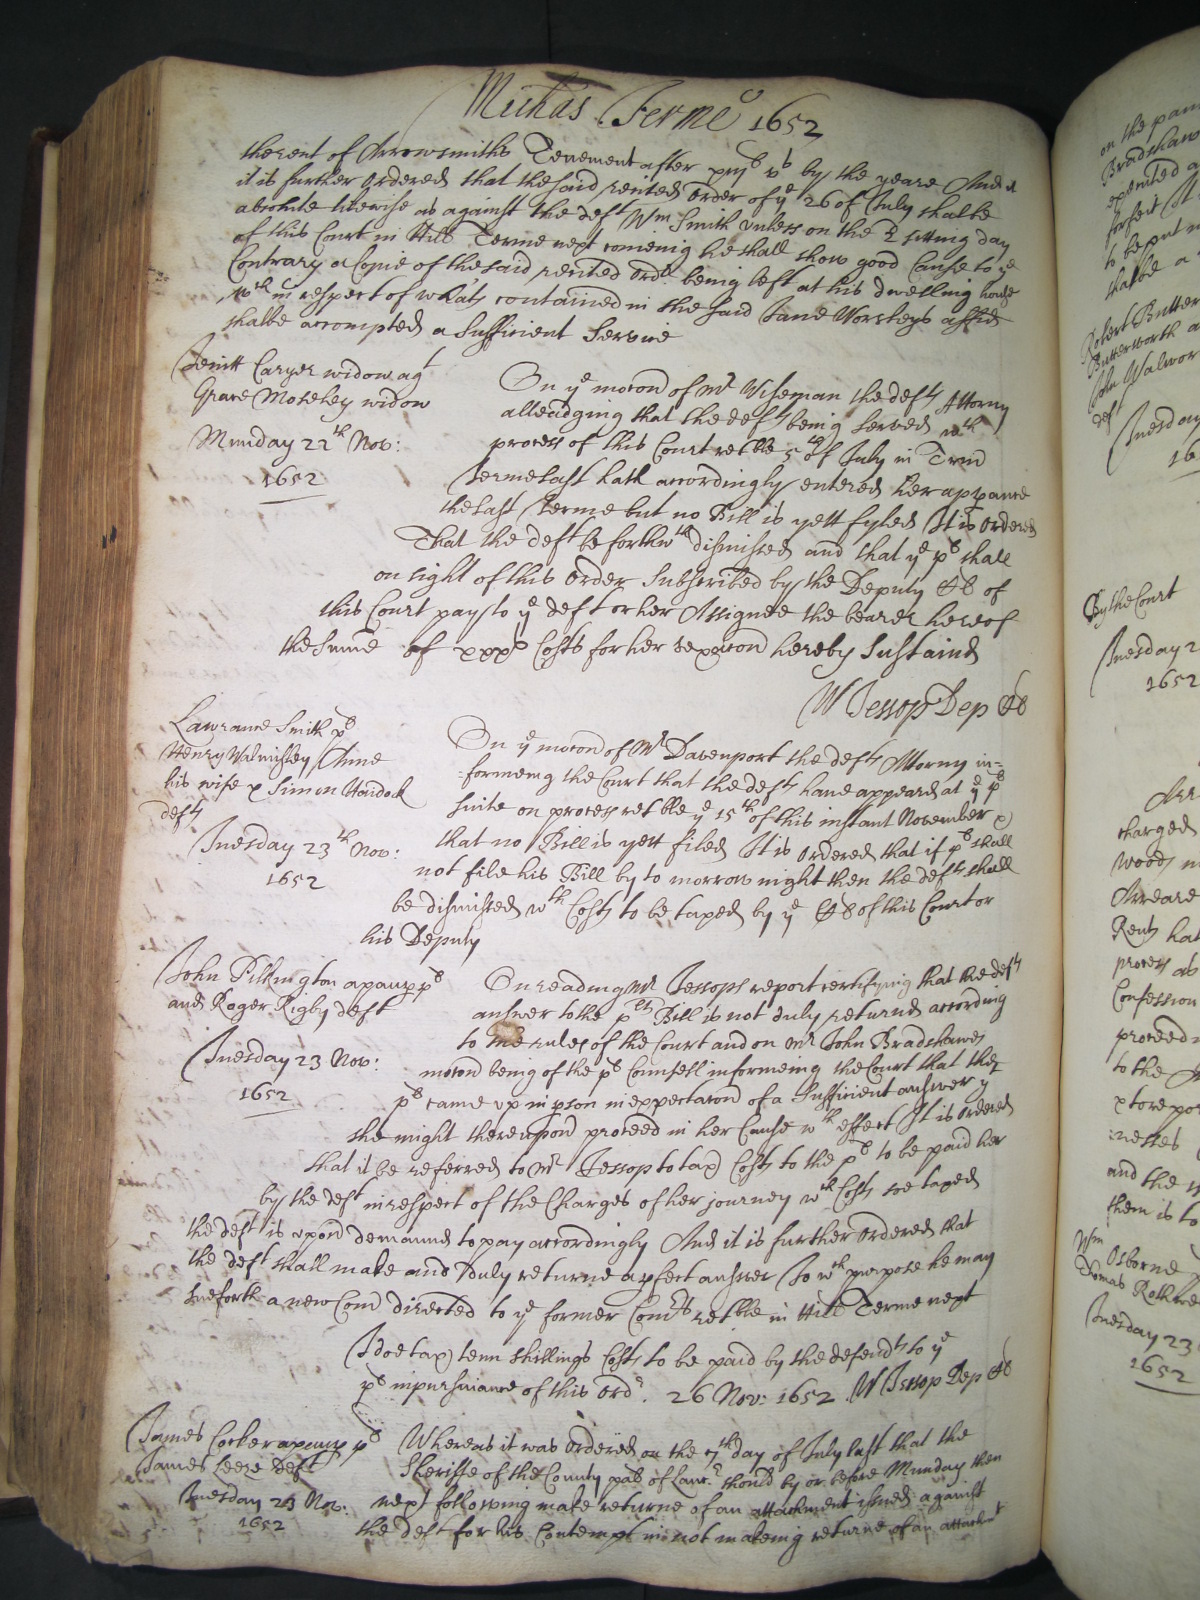 Michas Terme 1652
the rent of Arrowsmiths Tenement after xiijs vs by the yeare And
it is further Ordered that the said recited order of ye 26 of July shalbe
absolute likewise as against the deft Wm Smith unless on the 2 sitting day
of this Court in Hill Terme next comeing he shall show good Cause to ye
Contrary a Copie of the said recited Ordr being left at his dwelling house
wch in respect of what contained in the said Jane Worsleys affid
shalbe accompted a sufficient Service
Caryer widow agt
Grace Moseley widow
Munday 22th Nov:
1652
On ye mocond of Mr Wiseman the defts Attorny
alleadging that the deft being served wth
process of this Court retble 5th of July in Trin
Terme last hath accordingly entered her appance
the last Terme but no Bill is yett fyled It is Ordered
That the deft be forthwth dismissed and that ye pt shall
on sight of this Order Subscribed by the Deputy of
this Court pay to ye deft or her Assignee the bearer hereof
the sume of xxxs Costs for her vexacon hereby Sustained
W Jessop Dep
Lawrance Smith pt
Henry Walmisley Anne
his wife & Simon Haidock
defts
Tuesday 23th Nov:
1652
On ye mocond of Mr Davenport the defts Attorny in=
=formeing the Court that the defts have appeared at ye pts
suite on process retble ye 15th of this instant November &
that no Bill is yett filed It is Ordered that if pt shall
not file his Bill by to morrow night then the defts shall
be dismissed wth Costs to be taxed by ye of this Court or
his Deputy
John Pilkington a paup pt
and Roger Rigby deft
Tuesday 23 Nov:
1652
On reading Mr Jessops report certifying that the defts
answer to the plts Bill is not duly returned according
to the rules of the Court and on Mr John Bradshawes
mocond being of the pts Counsell informeing the Court that the
pt came up in pson in expectacond of a Sufficient answer yt
she might thereupon proceed in her Cause wth effect It is Ordered
that it be referred to Mr Jessop to tax Costs to the pt to be paid her
by the deft in respect of the Charges of her journey wch Costs soe taxed
the deft is upon demannd to pay accordingly And it is further Ordered that
the deft shall make and duly returne a pfect answer To wch purpose he may
sue forth a new Comd directed to ye former Comrs retble in Hill Terme next
I doe tax tenn shillings Costs to be paid by the defendt to ye
pt in pursuance of this Ordr. 26 Nov: 1652 W Jessop Dep
James Cocker a paup pt
James Leeze Deft
Tuesday 23 Nov:
1652
Whereas it was Ordered on the 7th day of July last that the
Sheriffe of the County of Lanc. should by or before Munday then
next following make returne of an attachment issued against
the deft for his Contempt in not makeing returne of an attachmt
on the pam
Bradshaw
to be put
shalbe a
Robert Butter
Butterworth a
John Walwor
deft
Tuesday
By the Court
Tuesday 2
1652
charged
Woods
Arreare
Rents hat
process as
Confession
proceed
to the
and the
them is to
Wm Osborne
Thomas Rothwe
Tuesday 23
1652